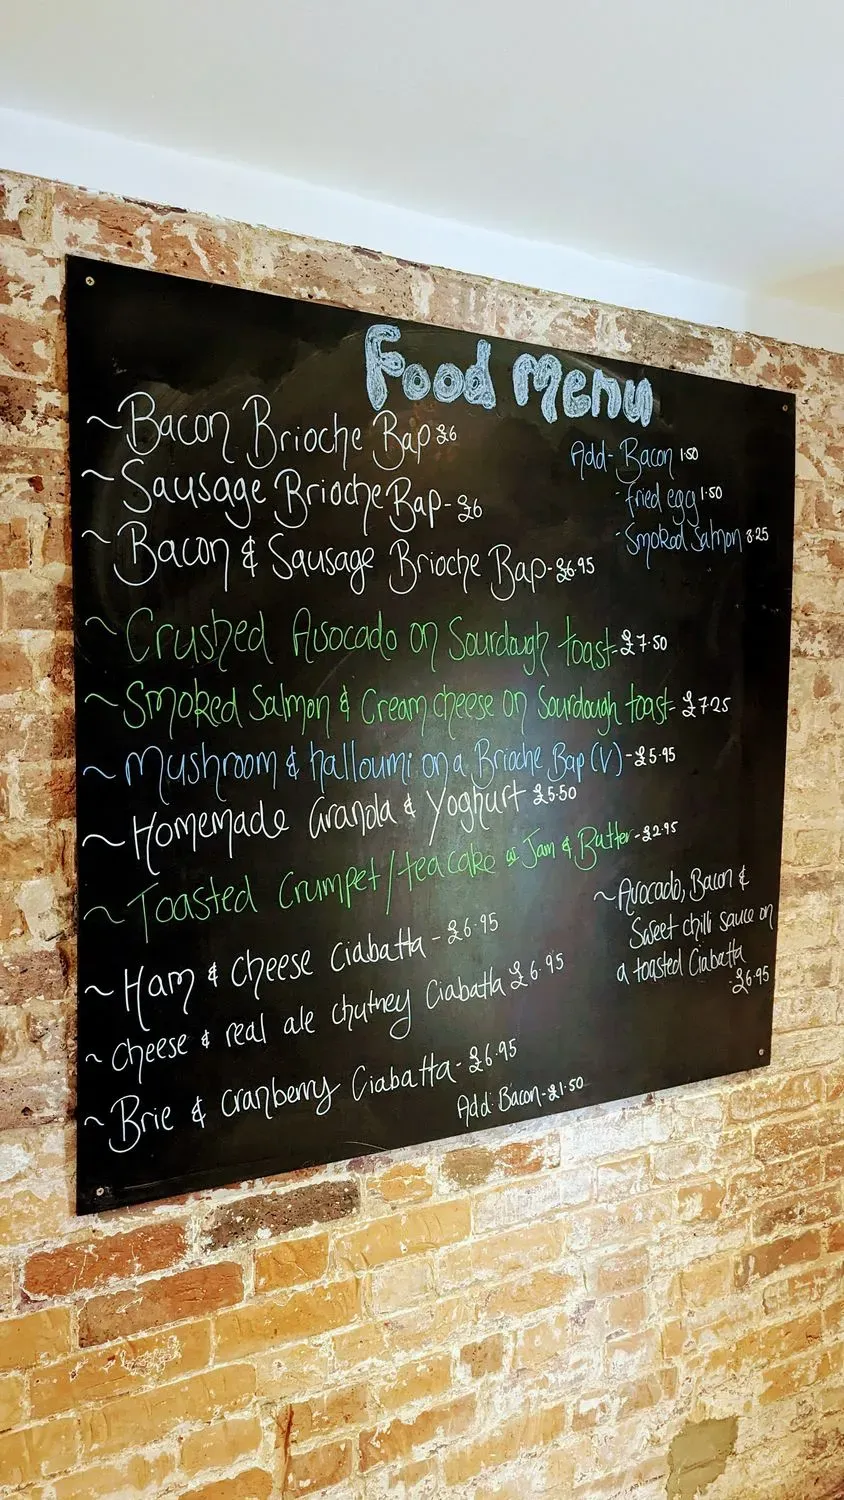 Food Menu
~Bacon Brioche Bap £6
~Sausage Brioche Bap-£6
~Bacon & Sausage Brioche Bap-£6.95
Add- Bacon 1.50
- fried egg 1.50
- Smoked Salmon 3.25
~Crushed Avocado on Sourdough toast-£7.50
~Smoked Salmon & Cream cheese on Sourdough toast-£7.25
~Mushroom & halloumi on a Brioche Bap (V)-£5.95
~Homemade Granola & Yoghurt £5.50
~Toasted Crumpet/teacake Jam & Butter-£2.95
~Ham & Cheese Ciabatta-£6.95
~Cheese & real ale chutney Ciabatta £6.95
~Brie & Cranberry Ciabatta-£6.95
Add: Bacon-£1.50
~Avocado, Bacon &
Sweet chilli sauce on
a toasted Ciabatta
-£6.95